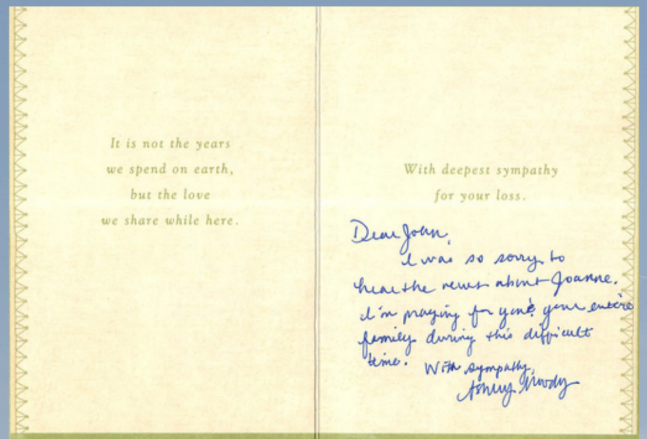 It is not the years
we spend on earth,
but the love
we share while here.
With deepest sympathy
for your loss.
Dear John,
I was so sorry to
hear the news about Joanne.
I'm praying for you & your entire
family during this difficult
time. With sympathy,
Ashley Moody